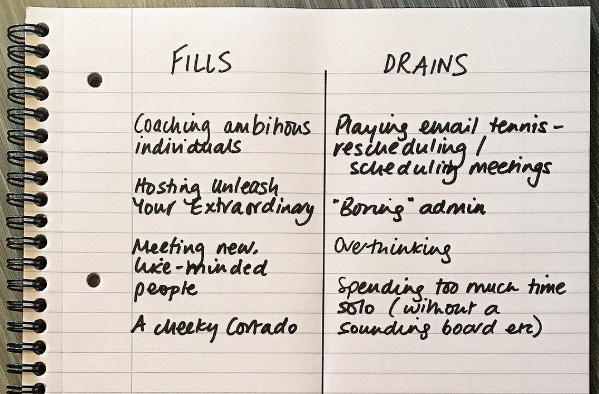 FILLS
Coaching ambitious
individuals
Hosting Unleash
Your Extraordinary
Meeting new,
like-minded
people
A cheeky Cortado
DRAINS
Playing email tennis -
rescheduling /
scheduling meetings
"Boring" admin
Overthinking
Spending too much time
solo (without a
sounding board etc)